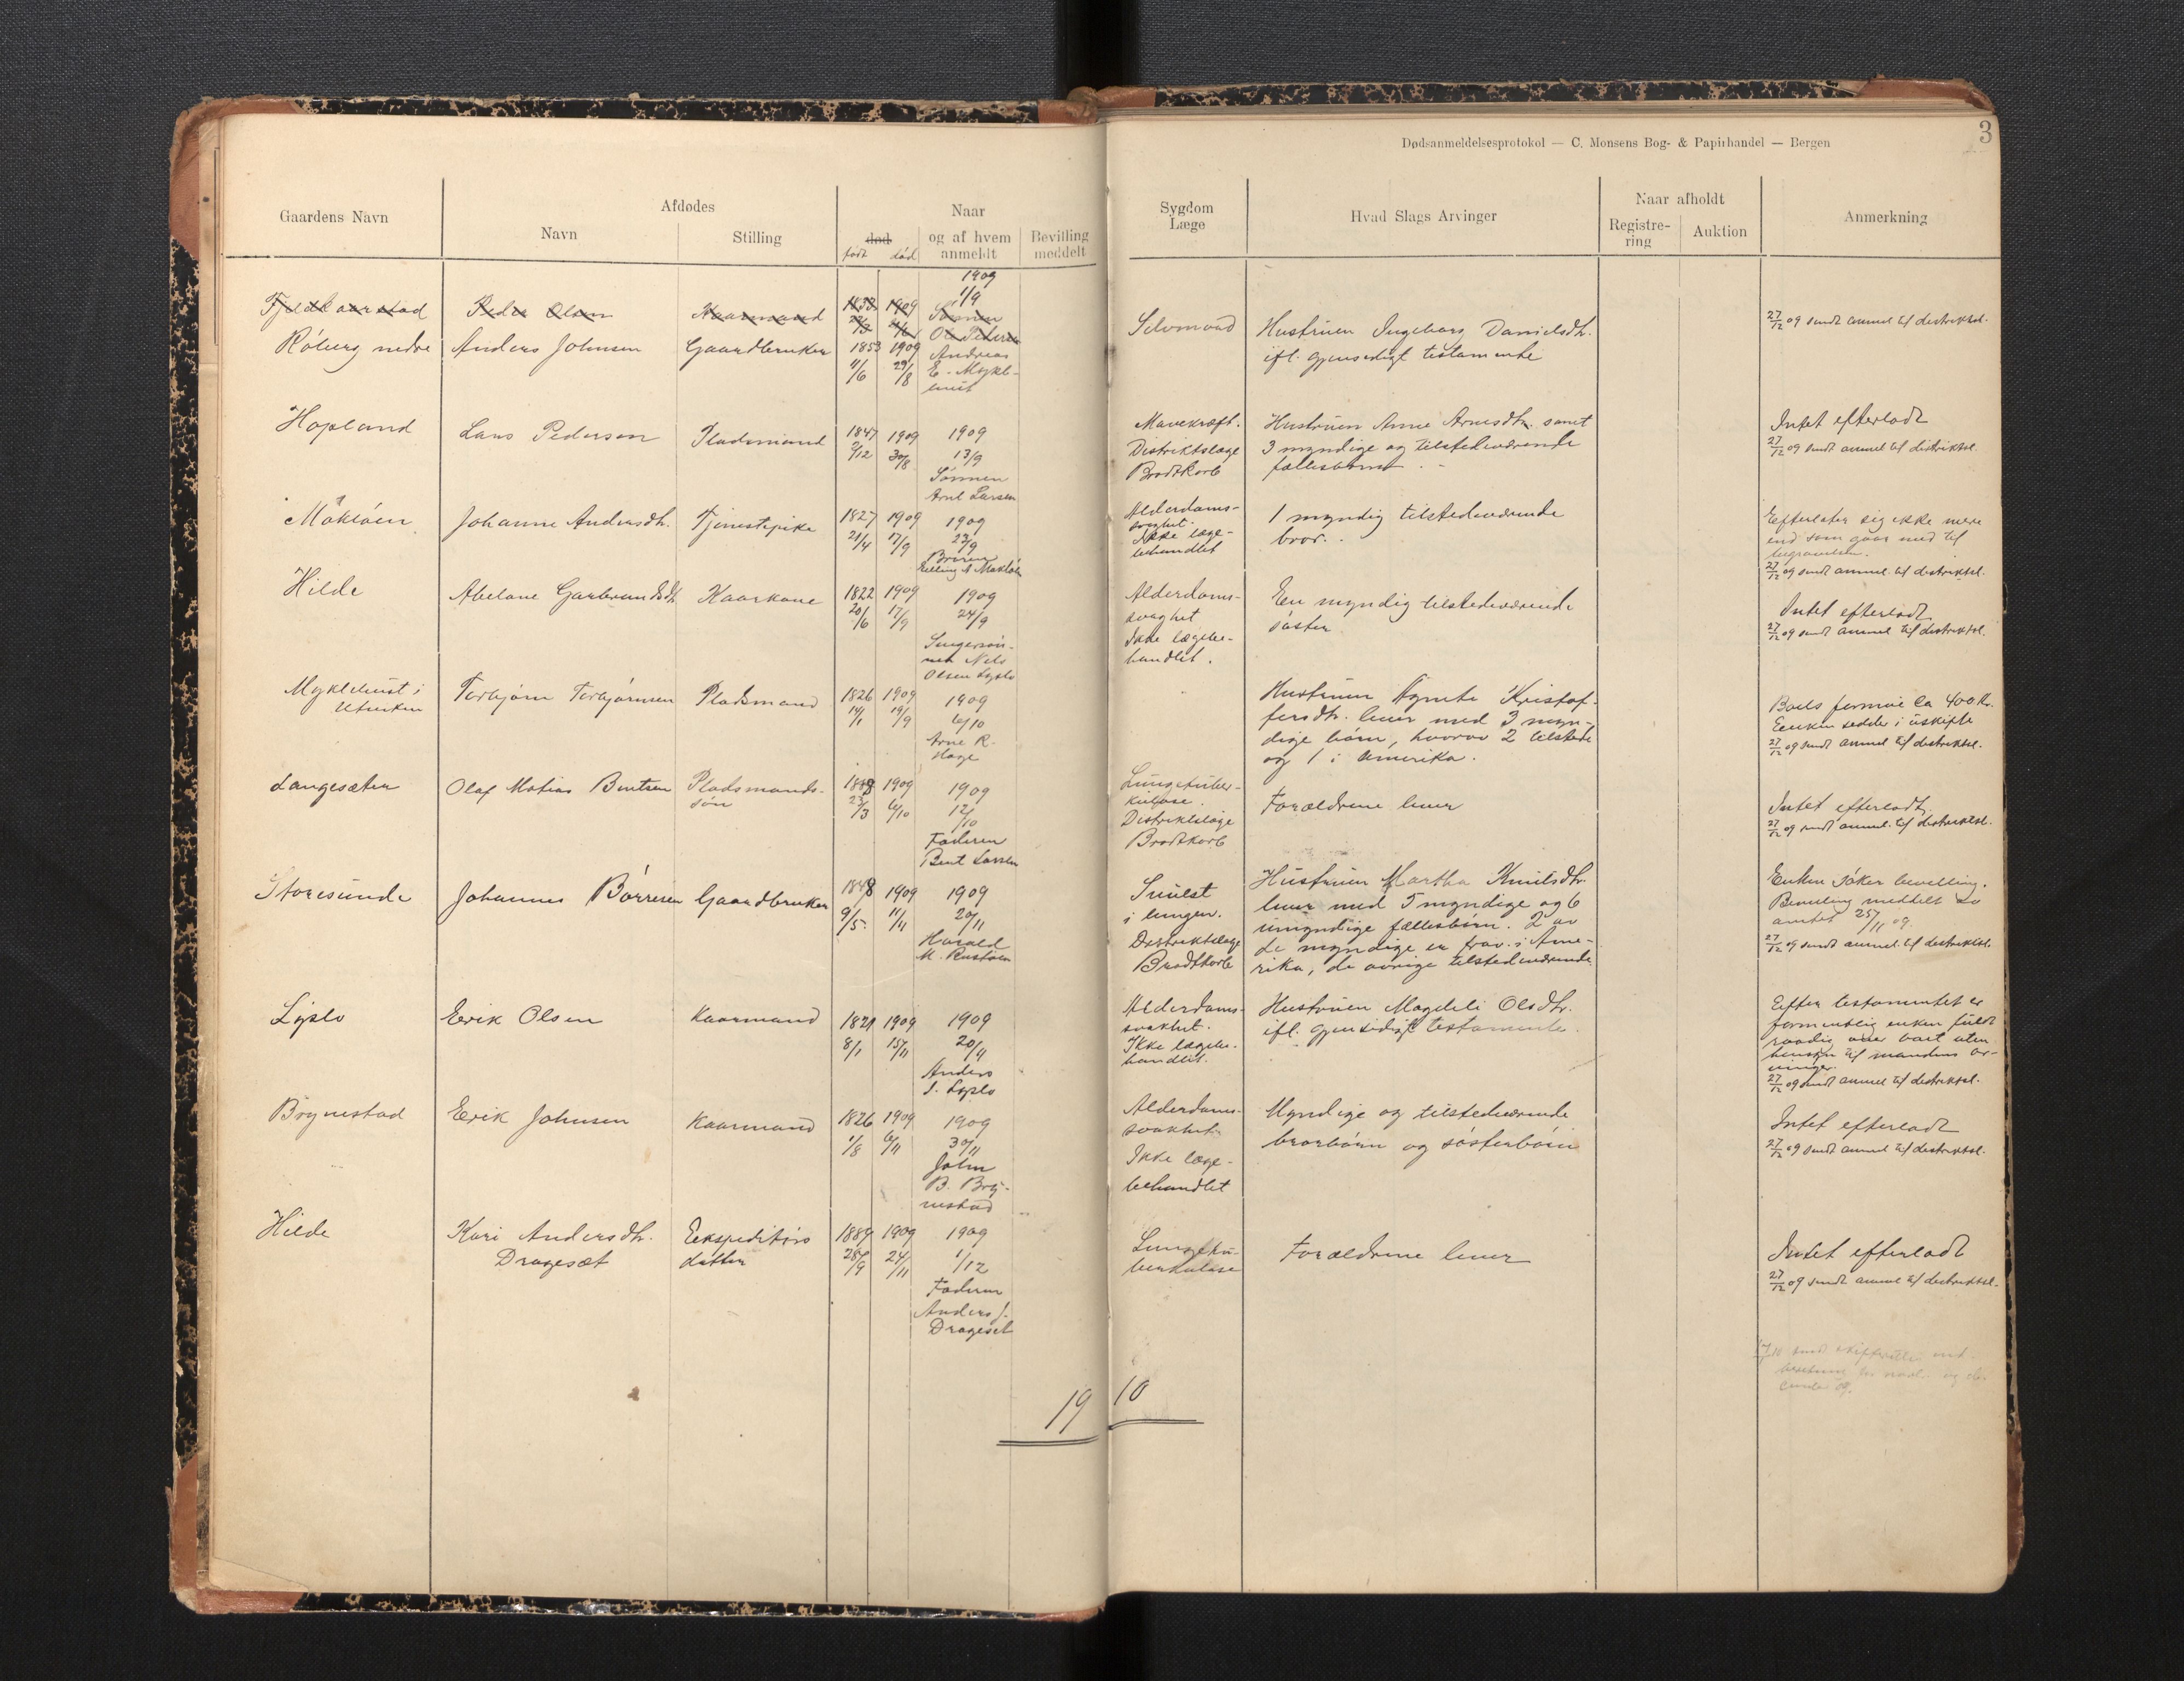 3
Dødsanmeldelsesprotokol — C. Monsens Bog- & Papirhandel — Bergen
Gaardens Navn
Afdødes
Navn
Stilling
Naar
død
født død
og af hvem
anmeldt
Bevilling
meddelt
Sygdom
Læge
Hvad Slags Arvinger
Naar afholdt
Registre-
ring
Auktion
Anmerkning
1909
1/9
Peder Olsen Kaarmand 1909 Sønnen
Ole Pedersen
Röberg nedre Anders Johnsen Gaardbruker 1853 1909 Andreas
11/6 29/8 E. Mykle-
bust
Selvmord
Hustruen Ingeborg Danielsdtr.
ifl. gjensidigt testamente
27/12 09 sendt anmel. til distriktsl.
Hopland Lars Pedersen Pladsmand 1847 1909 1909
9/12 30/8 13/9
Sönnen
Arnt Larsen
Mavekræft.
Distriktslæge
Brodtkorb
Hustruen Anne Arnesdtr. samt
3 myndige og tilstedeværende
fællesbarn.
Intet efterladt
27/12 09 sendt anmel til distriktsl.
Maklöen Johanne Andersdtr. Tjenestepike 1827 1909 1909
21/4 17/9 23/9
Broren
Elling A Maklöen
Alderdoms-
svaghet.
Ikke læge-
behandlet
1 myndig tilstedeværende
bror.
Efterlater sig ikke mere
end som gaar med til
begravelsen.
27/12 09 sendt anmel. til distriktsl.
Hilde Abelone Garbrandsdtr Kaarkone 1822 1909 1909
20/6 17/9 24/9
Svigersön-
nen Nils
Olsen Lyslo
Alderdoms-
svaghet
Ikke lægebe-
handlet.
En myndig tilstedeværende
söster
Intet efterladt
27/12 09 sendt anmel til distriktsl.
Myklebust i
Utvikten
Torbjörn Torbjörnsen Pladsmand 1826 1909 1909
14/1 19/9 6/10
Arne R.
Hage
Hustruen Agnete Kristof-
fersdtr. lever med 3 myn-
dige barn, hvorav 2 tilstede
og 1 i Amerika.
Boets formue ca 400 Kr.
Enken sedder i uskifte
27/12 09 sendt anmel til distriktsl.
Langesæter Olaf Matias Bentsen Pladsmands-
sön
1888 1909 1909
23/3 6/10 12/10
Faderen
Bent Larsen
Lungetuber-
kulose.
Distriktslæge
Brodtkorb
Forældrene lever
Intet efterladt
27/12 09 sendt anmel. til distriktsl.
Storesunde Johannes Börresen Gaardbruker 1848 1909 1909
9/5 11/11 20/11
Harald
M. Rustöen
Svulst
i lungen.
Distriktslæge
Brodtkorb
Hustruen Martha Knutsdtr.
lever med 5 myndige og 6
umyndige fællesbörn. 2 av
de myndige er frav. i Ame-
rika, de övrige tilstedeværende
Enken söker bevilling.
Bevilling meddelt av
amtet 25/11 09.
27/12 09 sendt anmel. til distriktsl.
Lyslo Erik Olsen Kaarmand 1821 1909 1909
8/1 15/11 20/11
Anders
S. Lyslo
Alderdoms-
svakhet.
Ikke lægebe-
handlet.
Hustruen Magdeli Olsdtr.
ifl. gjensidigt testamente.
Efter testamentet er
formentlig enken fuldt
raadig over boet uten
hensyn til mandens ar-
vinger.
27/12 09 sendt anmel til distriktsl.
Brynestad Erik Johnsen Kaarmand 1826 1909 1909
1/8 6/11 30/11
John
B. Bry-
nestad
Alderdoms-
svakhet
Ikke læge-
behandlet
Myndige og tilstedeværende
brorbörn og sösterbörn
Intet efterladt
27/12 09 sendt anmel til distriktsl.
Hilde Kari Andersdtr.
Dragesæt
Ekspeditörs
datter
1889 1909 1909
28/9 24/11 1/12
Faderen
Anders J.
Drageset
Lungetu-
berkulose
Forældrene lever
Intet efterladt
27/12 09 sendt anmel til distriktsl.
19 10